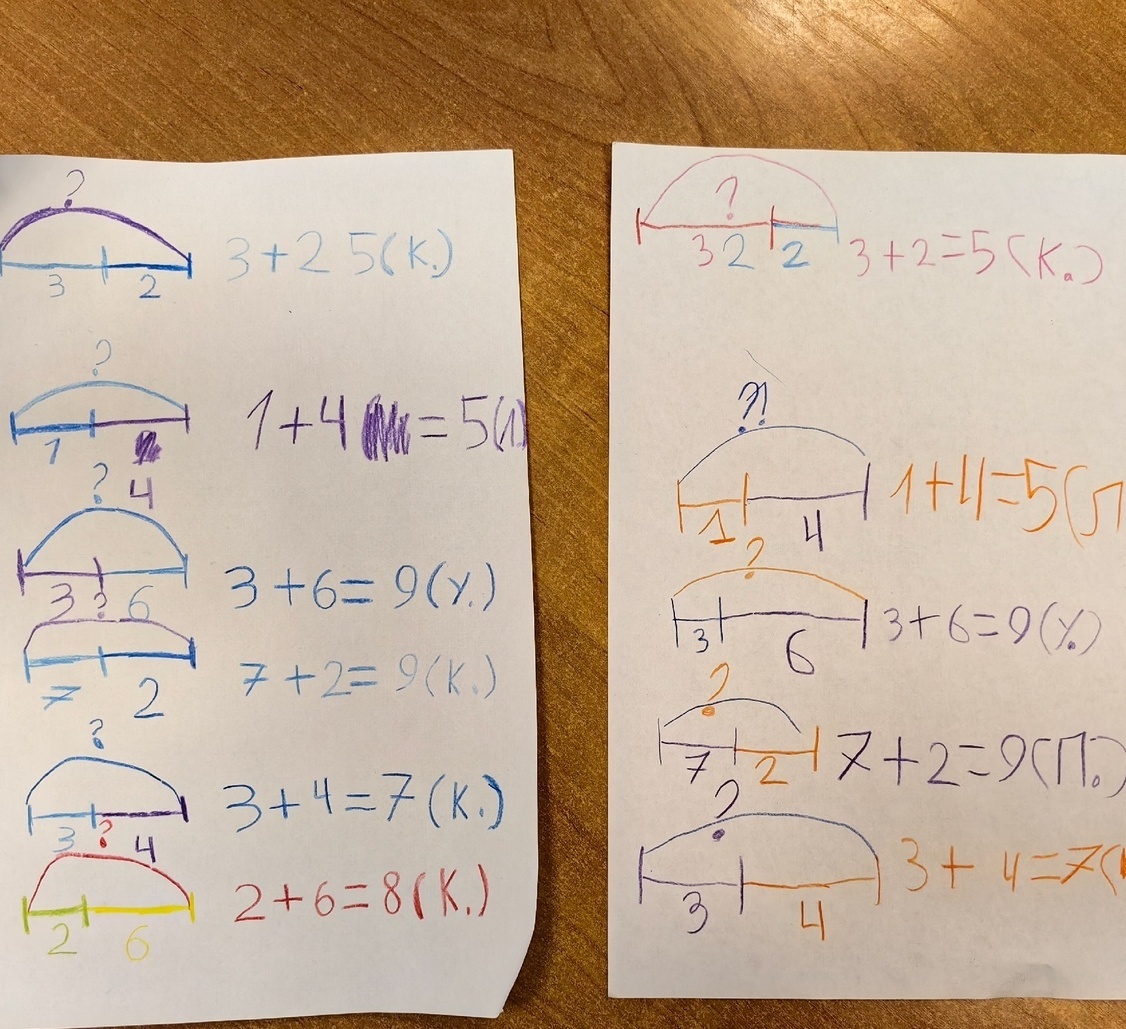 ?
3 2 3+2 5(К.)
?
1 4 1+4 = 5(Л)
?
3 6 3+6=9(У.)
?
7 2 7+2=9(К.)
?
3 4 3+4=7(К.)
?
2 6 2+6=8(К.)
?
3 2 2 3+2=5(К.)
?!
1 4 1+4=5(Л
?
3 6 3+6=9(У.)
?
7 2 7+2=9(П.)
?
3 4 3+4=7(